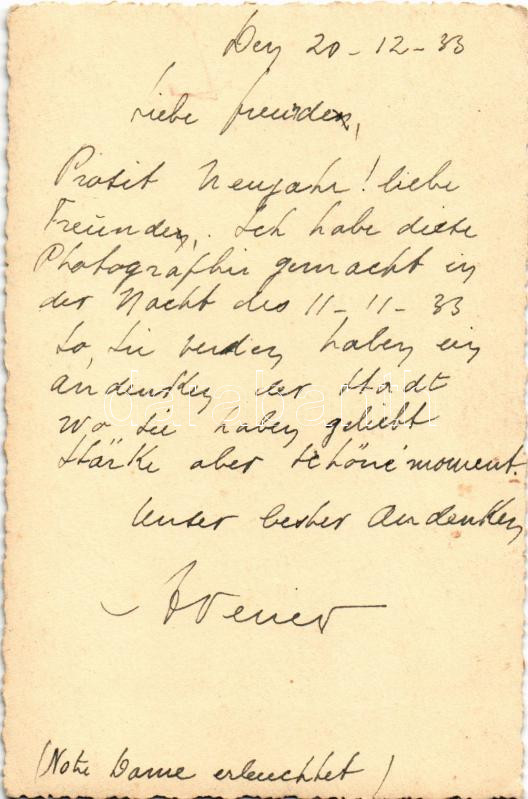 Den 20-12-33
Liebe Freunden,
Prosit Neujahr! liebe
Freunden. Ich habe diese
Photographie gemacht in
der Nacht des 11-11-33
So, Sie werden haben ein
Andenken der Stadt
wo Sie haben gelebt
Stärke aber schöne moment.
Unser bester Andenken
(Notre Dame erleuchtet)